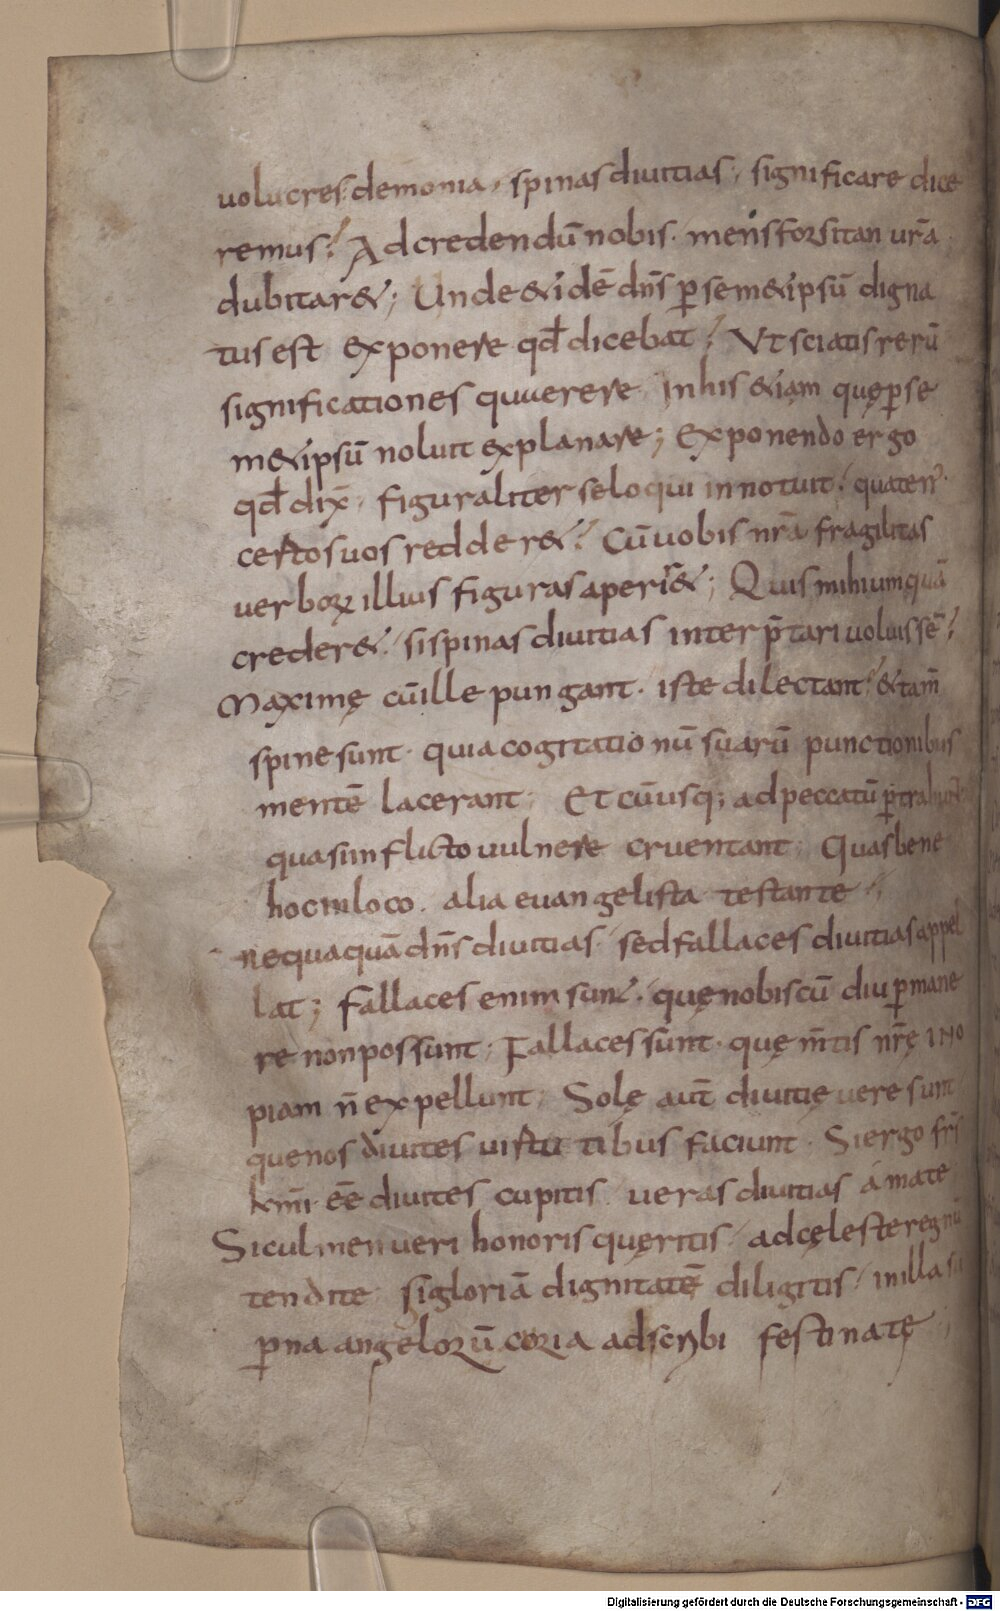 uolucres demonia, spinas diuitias, significare dice
remus? Ad credendū nobis. mens forsitan urā
dubitar&; Unde & idē dn̄s p̄ sem&ipsū digna
tus est exponere qd̄ dicebat? Vt sciatis rerū
significationes quuerere In his &iam quę p̄ se
m&ipsū noluit explanare; Exponendo ergo
qd̄ dix̄, figuraliter se loqui innotuit. quaten'
certos uos redder&? Cū uobis nrā fragilitas
uerboꝝ illius figuras aperir&; Quis mihi umquā
creder&. si spinas diuitias interp̄tari uoluissē?
Maximę cū ille pungant. iste dilectant. & tam̄
spine sunt. quia cogitationū suarū punctionibus
mentē lacerant; Et cū usq; ad peccatū p̄trahunt
quasi inflicto uulnere cruentant; Quas bene
hoc in loco. alia euangelista testante;
nequaquā dn̄s diuitias. sed fallaces diuitias appel
lat; fallaces enim sunt. quę nobiscū diu p̄mane
re non possunt; Fallaces sunt. quę m̄tis nr̄ę ino
piam n̄ expellunt; Solę aut̄ diuitię uere sunt
que nos diuites uirtutibus faciunt. Si ergo fr̄s
km̄i. eē diuites cupitis. ueras diuitias amate
Si culmen ueri honoris quęritis. ad cęleste regnū
tendite. si gloriā dignitatē diligitis. in illa su
p̄na angelorū coria adscribi festinatę;
Digitalisierung gefördert durch die Deutsche Forschungsgemeinschaft - DFG